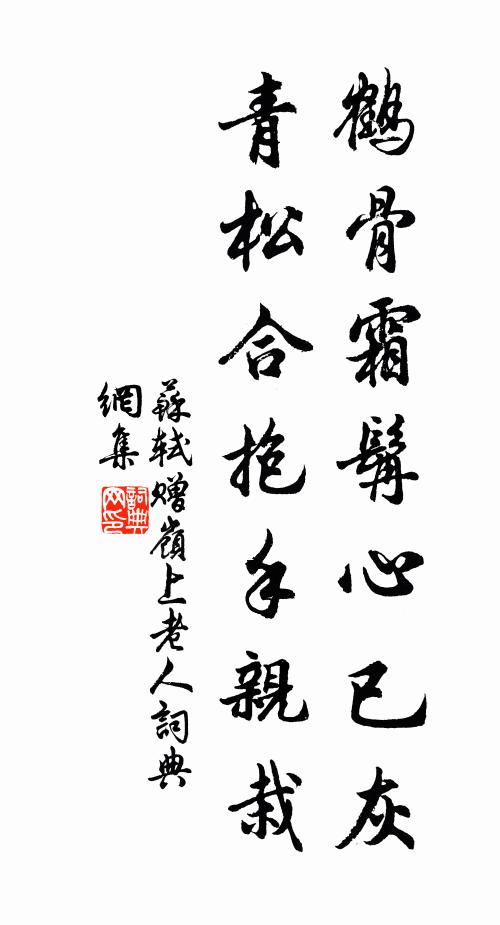 鶴骨霜髯心已灰
青松合抱手親栽
蘇軾贈嶺上老人詞典
網集
詞典
网印